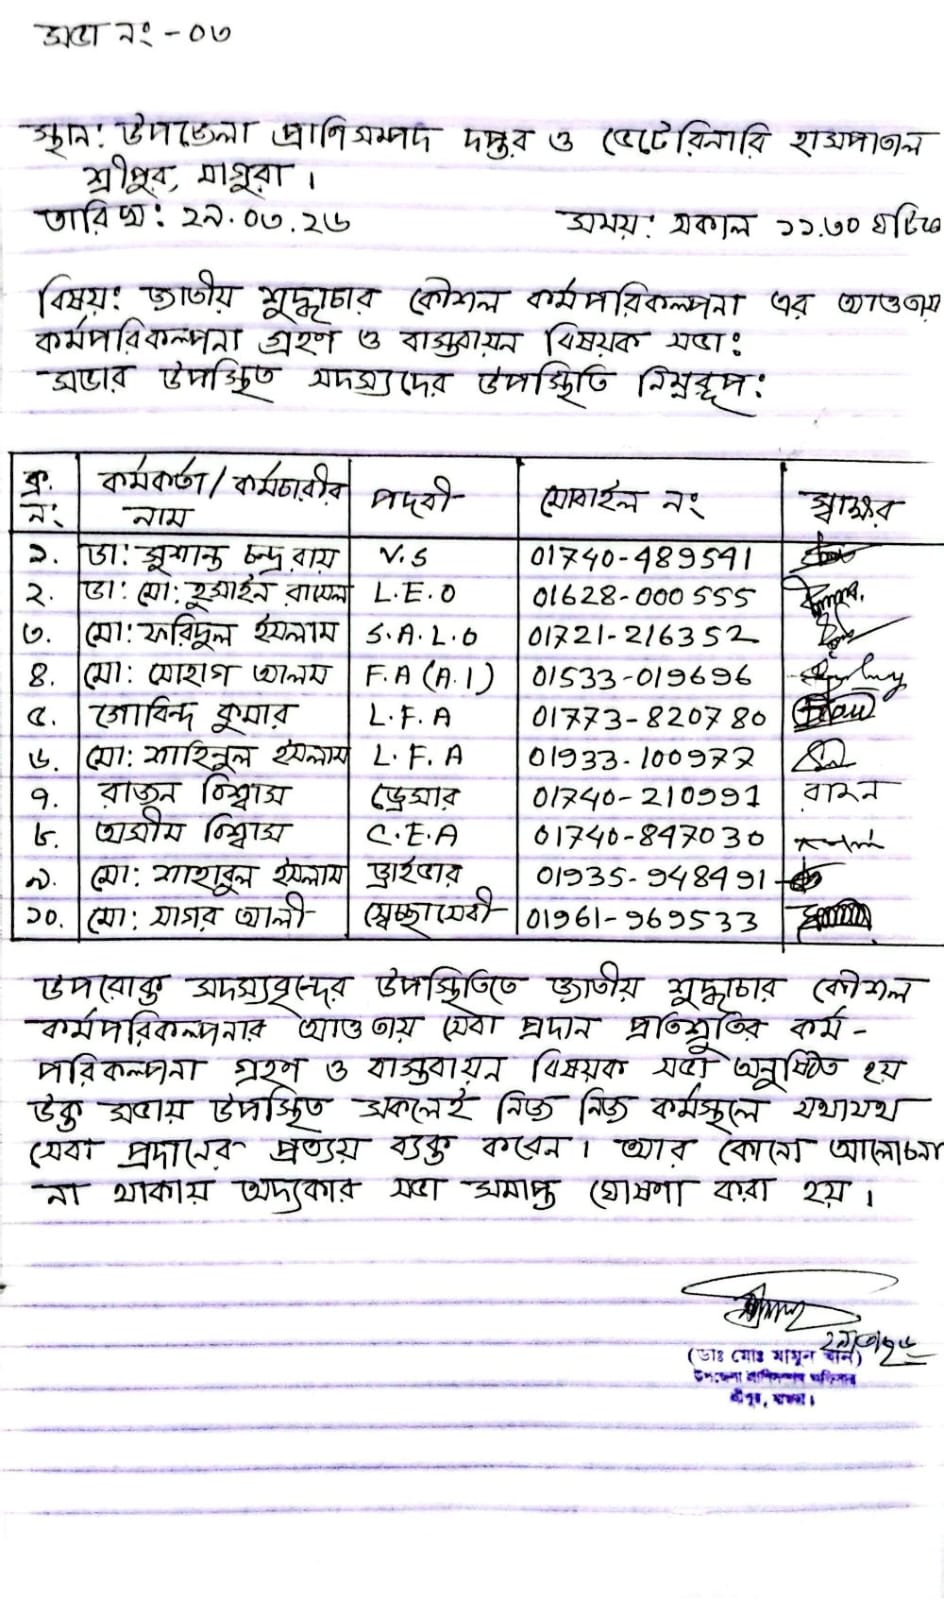 সভা নং -০৩
স্থান: উপজেলা প্রাণিসম্পদ দপ্তর ও ভেটেরিনারি হাসপাতাল
শ্রীপুর, মাগুরা।
তারিখ: ২৯.০৩.২৬ সময়: সকাল ১১.৩০ ঘটিকা
বিষয়: জাতীয় শুদ্ধাচার কৌশল কর্মপরিকল্পনা এর আওতায়
কর্মপরিকল্পনা গ্রহণ ও বাস্তবায়ন বিষয়ক সভা:
সভার উপস্থিত সদস্যদের উপস্থিতি নিম্নরূপ:
ক্র. নং কর্মকর্তা/কর্মচারীর নাম পদবী মোবাইল নং স্বাক্ষর
১. ডা: সুশান্ত চন্দ্র রায় V.S 01740-489541
২. ডা: মো: হুসাইন রাসেল L.E.O 01628-000555
৩. মো: ফরিদুল ইসলাম S.A.L.O 01721-216352
৪. মো: সোহাগ আলম F.A (A.I) 01533-019696
৫. গোবিন্দ কুমার L.F.A 01773-820780
৬. মো: শাহিনুল ইসলাম L.F.A 01933-100977
৭. রাজন বিশ্বাস ড্রেসার 01740-210991
৮. অসীম বিশ্বাস C.E.A 01740-847030
৯. মো: শাহাবুল ইসলাম ড্রাইভার 01935-948491
১০. মো: সাগর আলী স্বেচ্ছাসেবী 01961-969533
উপরোক্ত সদস্যবৃন্দের উপস্থিতিতে জাতীয় শুদ্ধাচার কৌশল
কর্মপরিকল্পনার আওতায় সেবা প্রদান প্রতিশ্রুতির কর্ম-
পরিকল্পনা গ্রহণ ও বাস্তবায়ন বিষয়ক সভা অনুষ্ঠিত হয়
উক্ত সভায় উপস্থিত সকলেই নিজ নিজ কর্মস্থলে যথাযথ
সেবা প্রদানের প্রত্যয় ব্যক্ত করেন। আর কোনো আলোচনা
না থাকায় অদ্যকার সভা সমাপ্ত ঘোষণা করা হয়।
(ডাঃ মোঃ মামুন খান)
উপজেলা প্রাণিসম্পদ অফিসার
শ্রীপুর, মাগুরা।